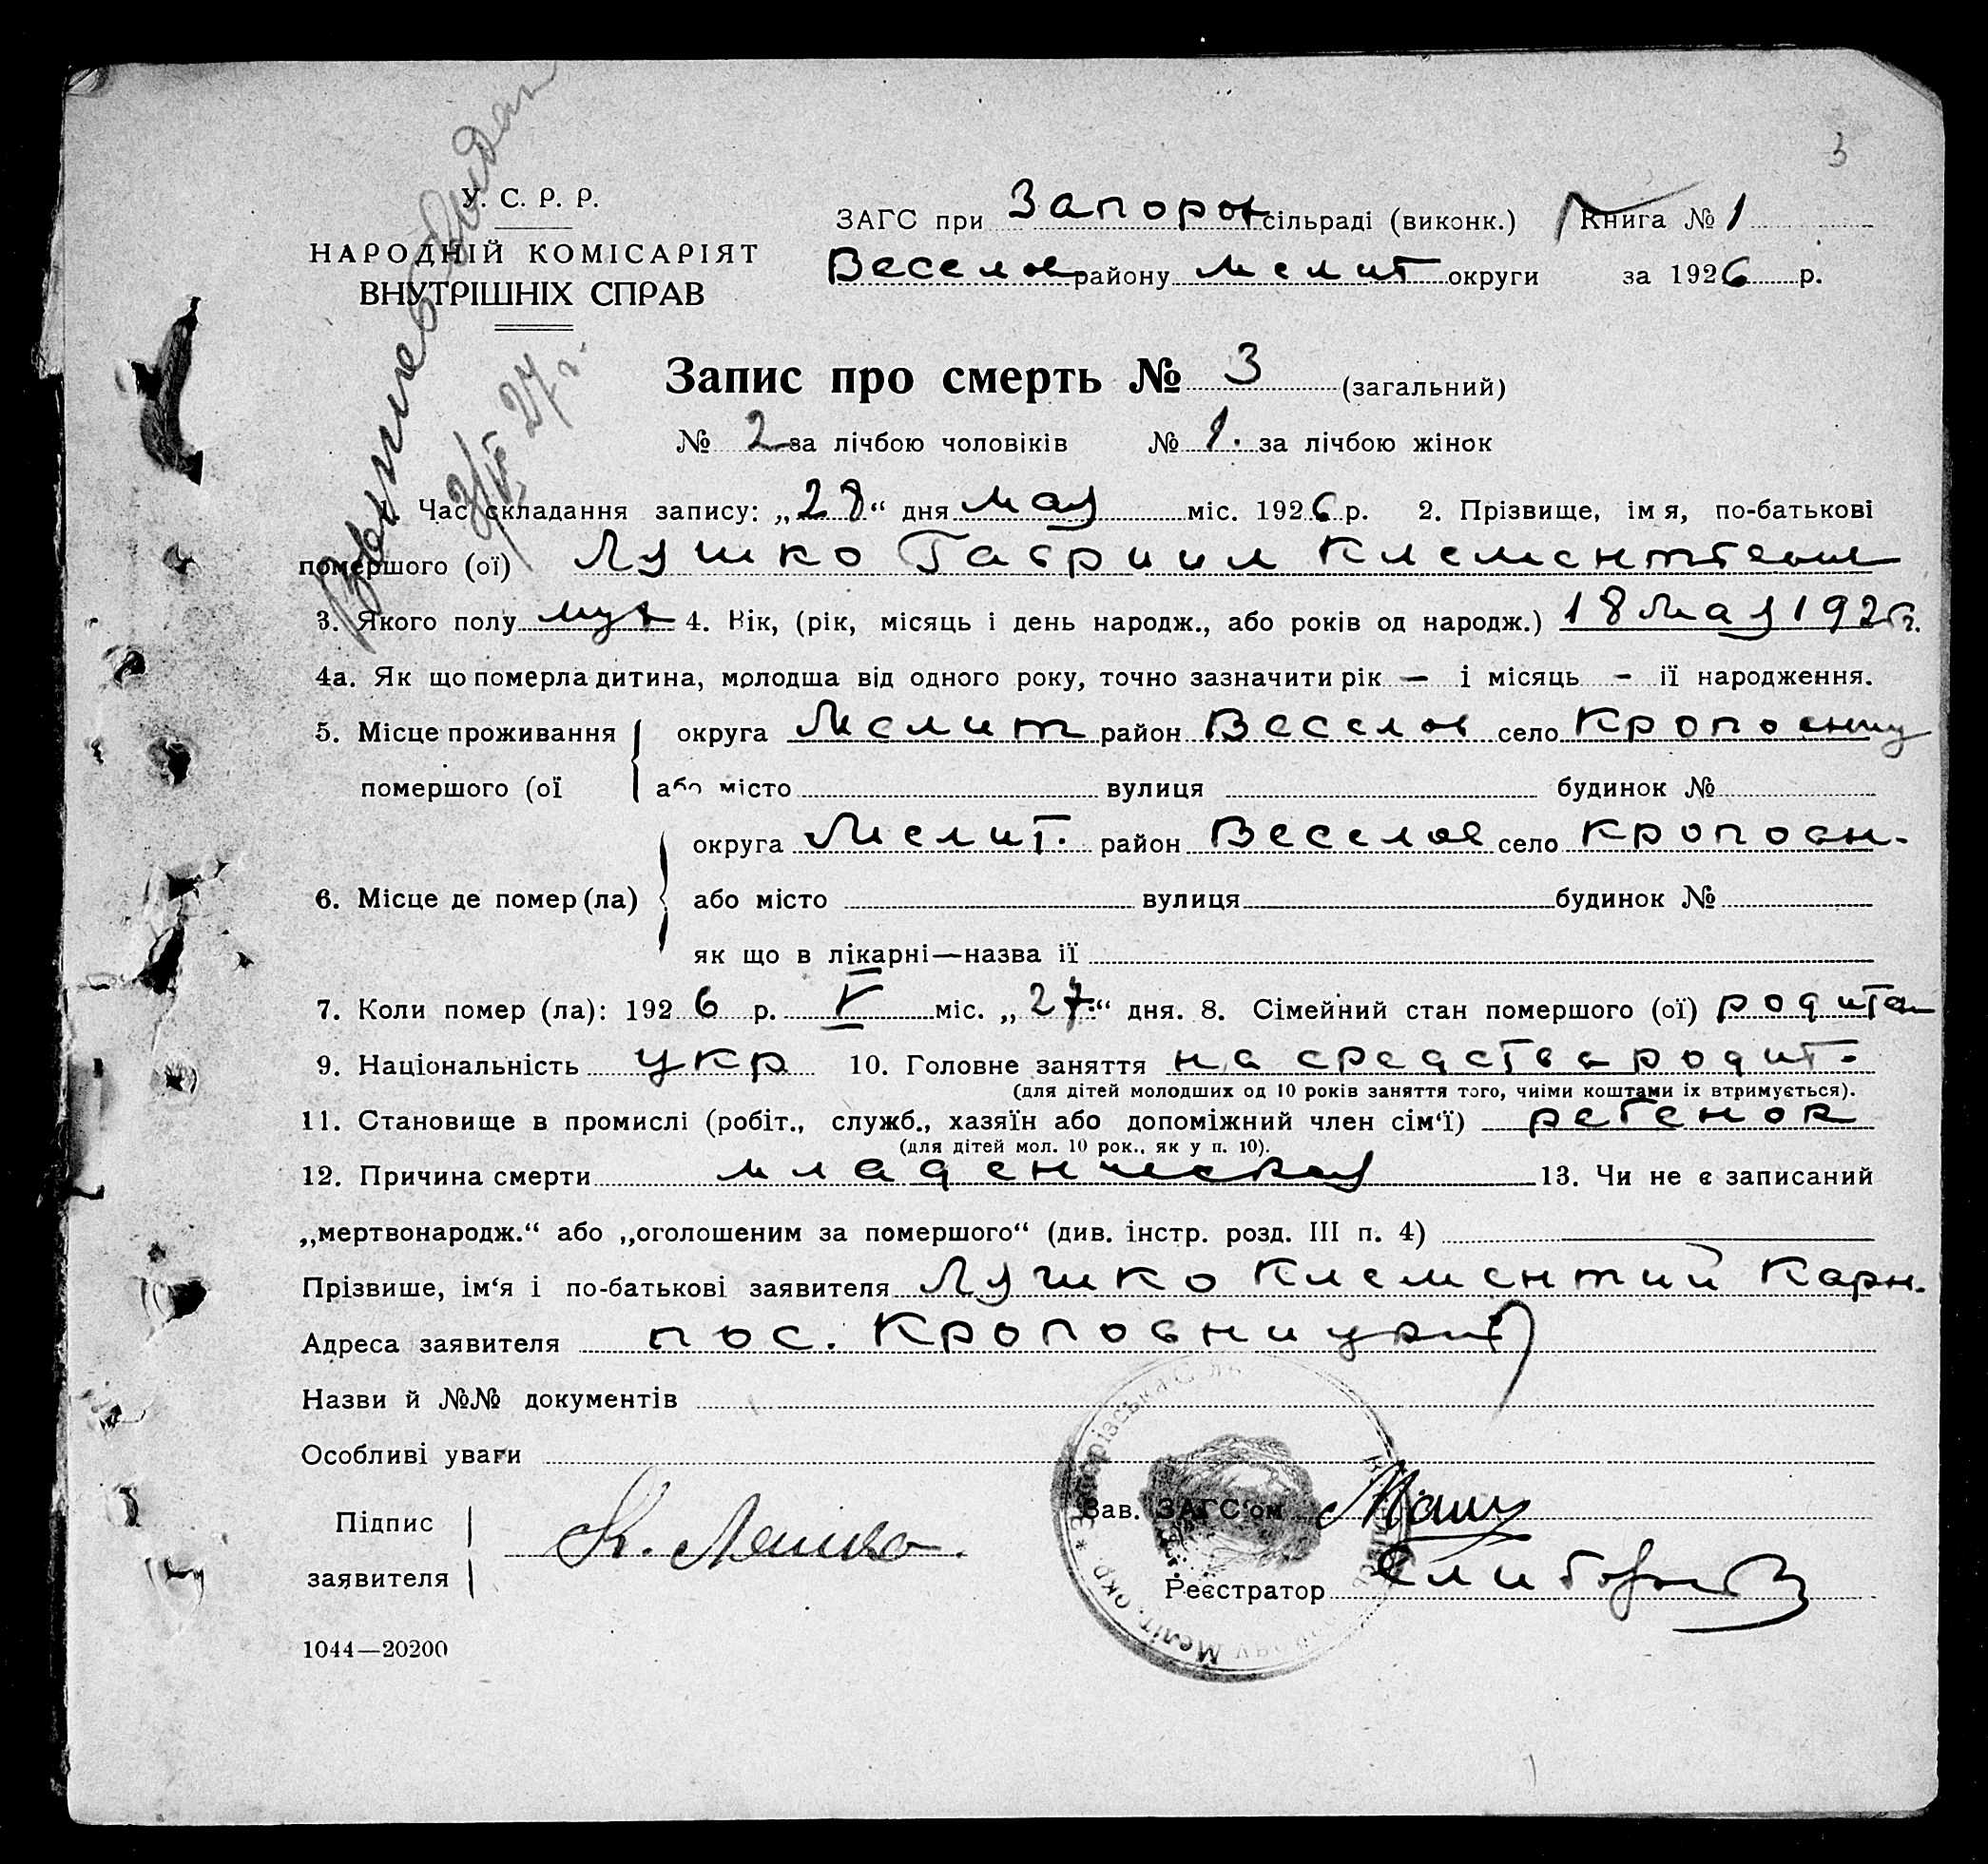 3
У. С. Р. Р.
НАРОДНІЙ КОМІСАРІЯТ
ВНУТРІШНІХ СПРАВ
ЗАГС при Запорож сільраді (виконк.) Книга № 1
Веселов району Мелит округи за 1926 р.
Запис про смерть № 3 (загальний)
№ 2 за лічбою чоловіків № 1. за лічбою жінок
1. Час складання запису: „28“ дня мая міс. 1926 р. 2. Прізвище, імя, по-батькові
помершого (ої) Лушко Гавриил Клементевич
3. Якого полу муж 4. Вік, (рік, місяць і день народж., або років од народж.) 18 мая 1926 г.
4а. Як що померла дитина, молодша від одного року, точно зазначити рік — і місяць - ії народження.
5. Місце проживання округа Мелит район Веселов село Кроповниц
помершого (ої або місто вулиця будинок №
округа Мелит. район Веселов село Кроповн.
6. Місце де помер (ла) або місто вулиця будинок №
як що в лікарні—назва ії
7. Коли помер (ла): 1926 р. V міс. „27“ дня. 8. Сімейний стан помершого (ої)
9. Національність укр 10. Головне заняття на средства родит.
(для дітей молодших од 10 років заняття того, чиіми коштами іх втримується).
11. Становище в промислі (робіт., служб., хазяїн або допоміжний член сім'ї) ребенок
(для дітей мол. 10 рок., як у п. 10).
12. Причина смерти младенческая 13. Чи не є записаний
„мертвонародж.“ або „оголошеним за помершого“ (див. інстр. розд. III п. 4)
Прізвише, ім'я і по-батькові заявителя Лушко Клементий Карн.
Адреса заявителя пос. Кроповницкий
Назви й №№ документів
Особливі уваги
Підпис
заявителя К. Лошко.
Зав. ЗАГС'ом
Реєстратор
1044—20200